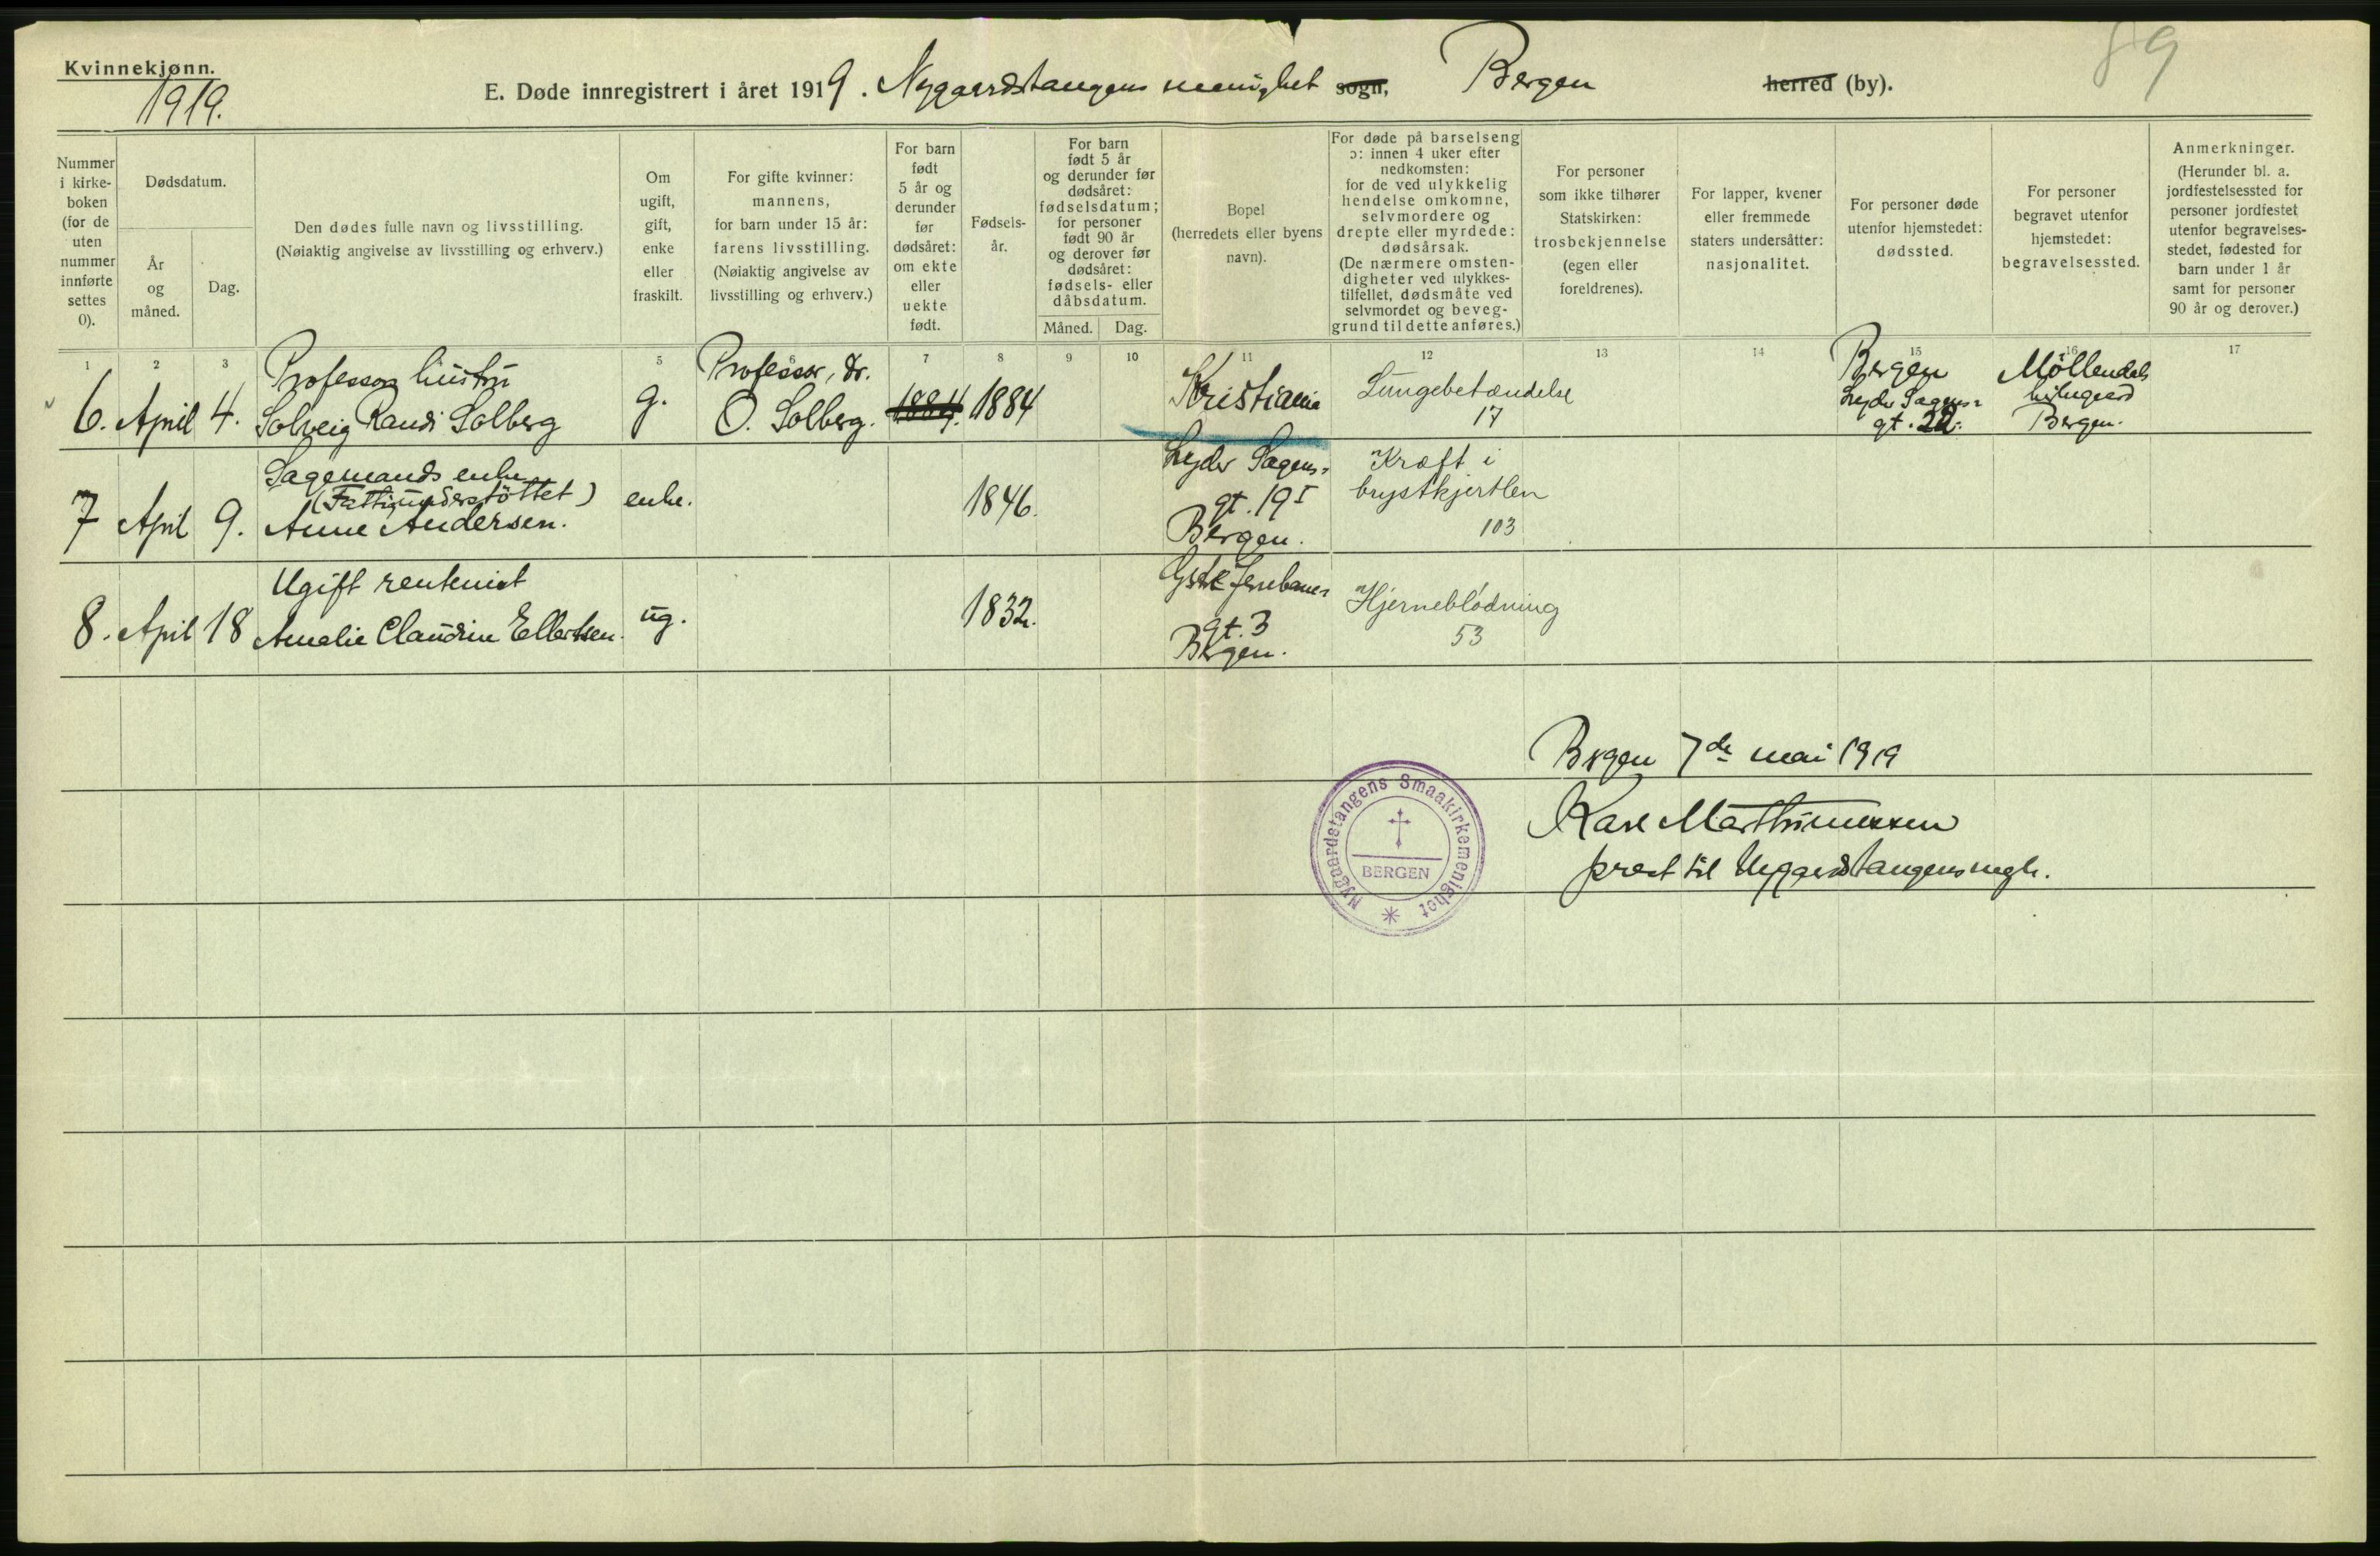 Kvinnekjønn.
1919.
E. Døde innregistrert i året 1919. Nygaardstangens menighet sogn, Bergen herred (by).
89
Nummer i kirke- boken (for de uten nummer innførte settes 0).
Dødsdatum.
År og måned.
Dag.
Den dødes fulle navn og livsstilling.
(Nøiaktig angivelse av livsstilling og erhverv.)
Om ugift, gift, enke eller fraskilt.
For gifte kvinner: mannens, for barn under 15 år: farens livsstilling. (Nøiaktig angivelse av livsstilling og erhverv.)
For barn født 5 år og derunder før dødsåret: om ekte eller uekte født.
Fødsels- år.
For barn født 5 år og derunder før dødsåret: fødselsdatum; for personer født 90 år og derover før dødsåret: fødsels- eller dåbsdatum.
Måned.
Dag.
Bopel (herredets eller byens navn).
For døde på barselseng ɔ: innen 4 uker efter nedkomsten: for de ved ulykkelig hendelse omkomne, selvmordere og drepte eller myrdede: dødsårsak. (De nærmere omsten- digheter ved ulykkes- tilfellet, dødsmåte ved selvmordet og beveg- grund til dette anføres.)
For personer som ikke tilhører Statskirken: trosbekjennelse (egen eller foreldrenes).
For lapper, kvener eller fremmede staters undersåtter: nasjonalitet.
For personer døde utenfor hjemstedet: dødssted.
For personer begravet utenfor hjemstedet: begravelsessted.
Anmerkninger. (Herunder bl. a. jordfestelsessted for personer jordfestet utenfor begravelses- stedet, fødested for barn under 1 år samt for personer 90 år og derover.)
1 2 3 5 6 7 8 9 10 11 12 13 14 15 16 17
6. April 4.
Professor hustru
Solveig Randi Solberg
g.
Professor, dr.
O. Solberg.
1884. 1884
Kristiania
Lungebetændelse
17
Bergen
Lyder Sagens-
gt. 22.
Möllendals
kirkegaard
Bergen.
7 April 9.
Sagemands enke
(Fattigunderstöttet)
Anne Andersen.
enke.
1846.
Lyder Sagens-
gt. 19 I
Bergen.
Kræft i
brystkjertlen
103
8. April 18
Ugift rentenist
Amalie Claudine Ellertsen.
ug.
1832.
gt. 3
Bergen.
Hjerneblödning
53
Bergen 7de mai 1919
Karl Marthinussen
prest til Nygaardstangens mgh.
Nygaardstangens Smaakirkemenighet
BERGEN